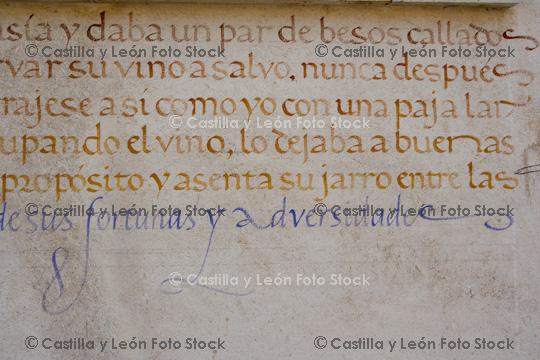 asía y daba un par de besos callados
© Castilla y León Foto Stock © Castilla y León Foto Stock
rvar su vino a salvo, nunca despues
rajese a sí como yo con una paja lar
© Castilla y León Foto Stock
upando el vino, lo dejaba a buenas
propósito y asenta su jarro entre las
© Castilla y León Foto Stock © Castilla y León Foto Stock
de sus fortunas y adversidades
© Castilla y León Foto Stock
© Castilla y León Foto Stock © Castilla y León Foto Stock